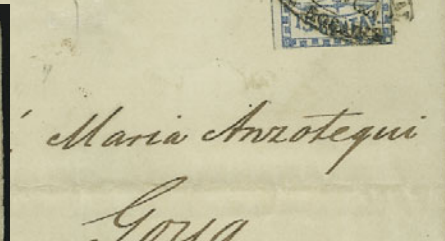 Maria Anzotegui
Goya